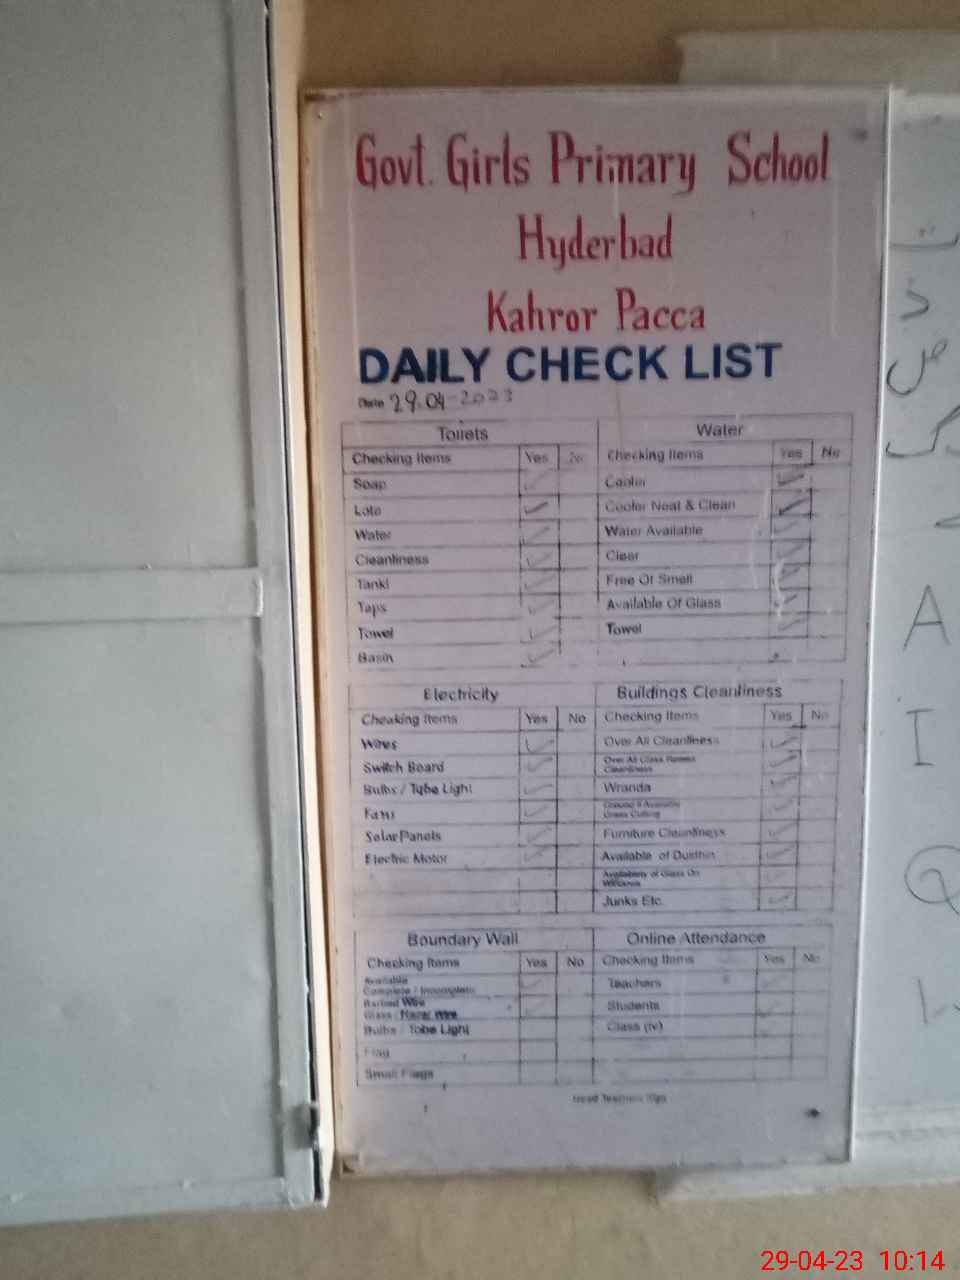 Govt. Girls Primary School
Hyderbad
Kahror Pacca
DAILY CHECK LIST
Date 29.04-2023
Toilets
Checking Items Yes No
Soap
Lota
Water
Cleanliness
Tanki
Taps
Towel
Basin
Water
Checking Items Yes No
Cooler
Cooler Neat & Clean
Water Available
Clear
Free Of Smell
Available Of Glass
Towel
Electricity
Checking Items Yes No
Wires
Switch Board
Bulbs / Tube Light
Fans
Solar Panels
Electric Motor
Buildings Cleanliness
Checking Items Yes No
Over All Cleanliness
Over All Class Rooms
Cleanliness
Wranda
Ground If Available
Grass Cutting
Furniture Cleanliness
Available of Dustbin
Availability of Glass On
Junks Etc.
Boundary Wall
Checking Items Yes No
Available
Complete / Incomplete
Barbed Wire
Glass / Razer Wire
Bulbs / Tobe Light
Flag
Small Flags
Online Attendance
Checking Items Yes No
Teachers
Students
Class (iv)
Head Teachers Sign
ص
A
I
Q
29-04-23 10:14